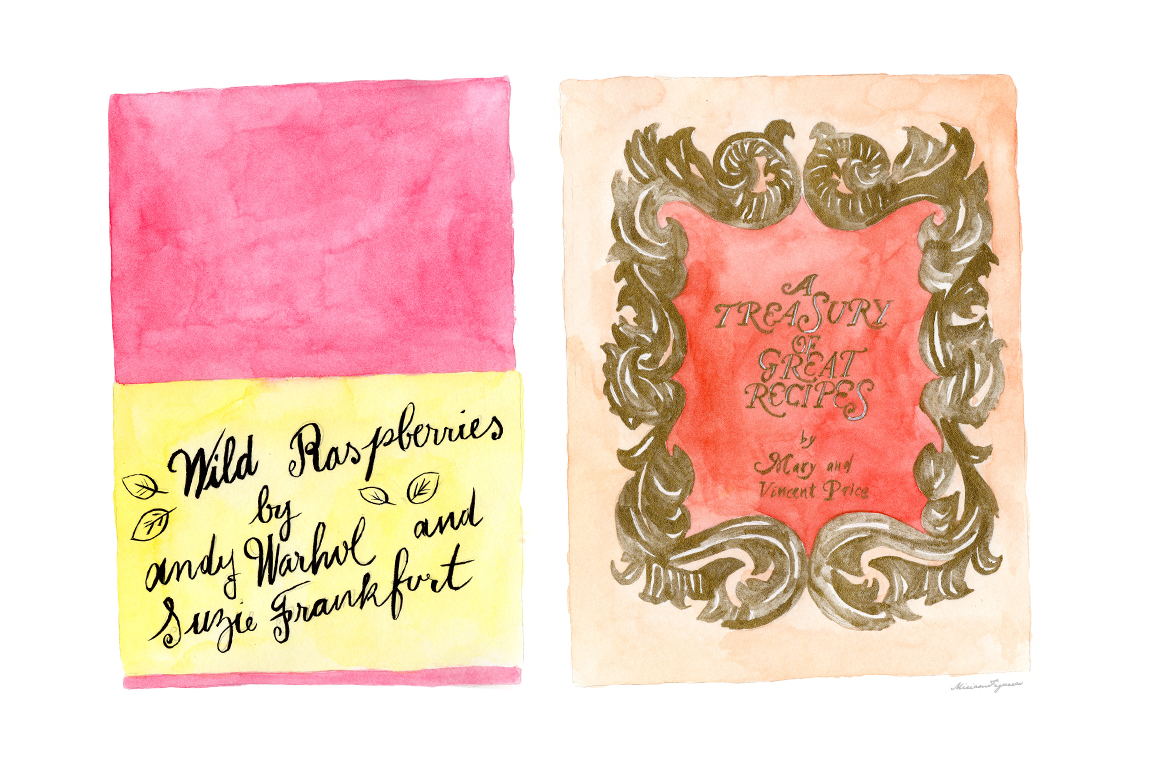 Wild Raspberries
by
andy Warhol and
Suzie Frankfurt
A
TREASURY
OF
GREAT
RECIPES
by
Mary and
Vincent Price